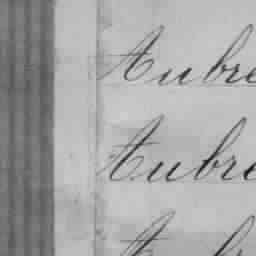 Aubre
Aubre